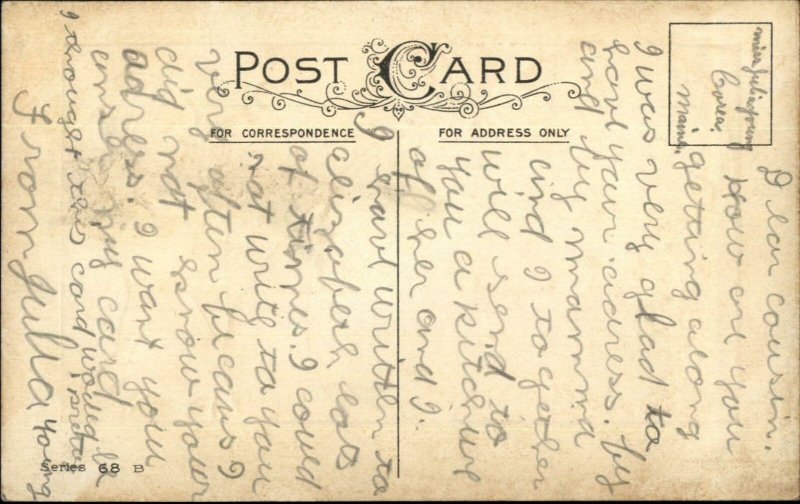 POST CARD
FOR CORRESPONDENCE
FOR ADDRESS ONLY
miss Julia young
Corea,
Maine.
Dear cousin.
How are you
getting along
I was very glad to
have your adress. by
and by mamma
and I together
will send to
you a pitchure
of her and I.
I have written to
elizabeth lots
of times. I could
not write to you
very often becaus I
did not know your
adress. I want your
answer my card
I thought this card would be pretty
From Julia Young
Series 68 B